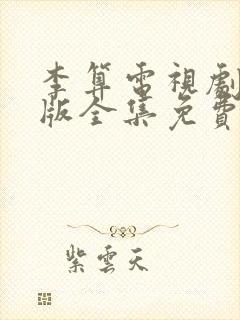 李算電視劇
版全集免費
紫雲天